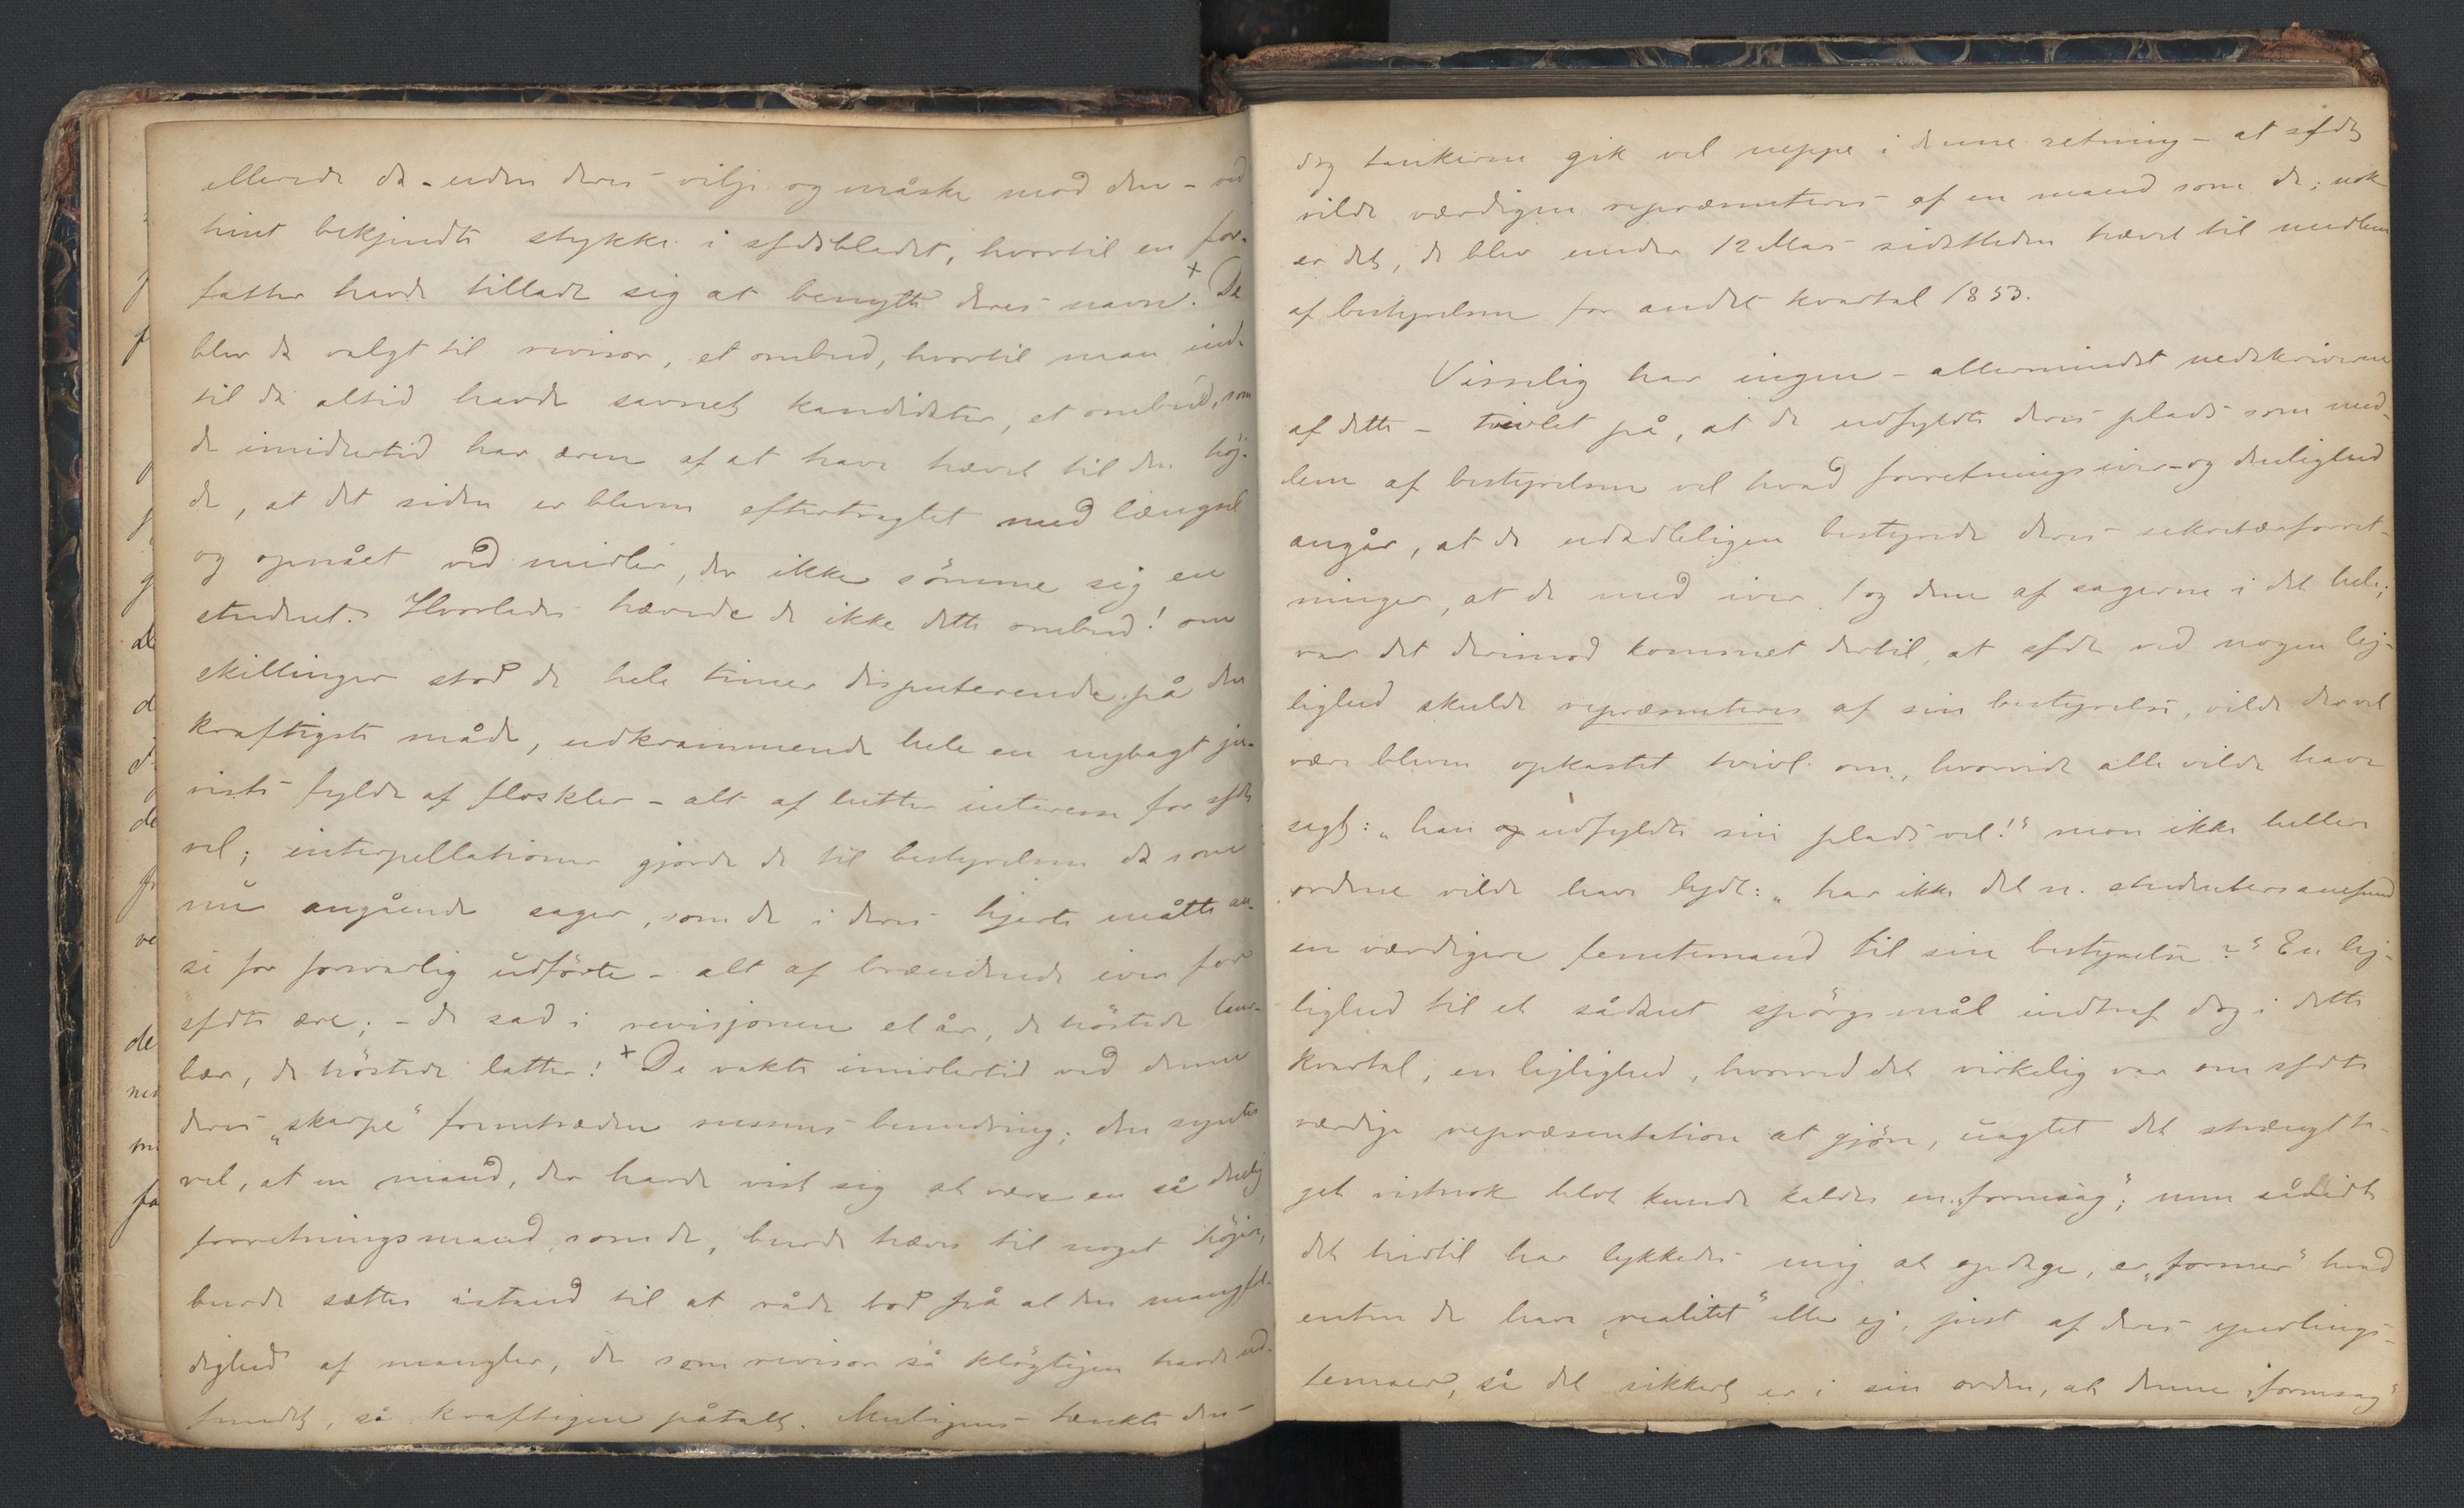 allerede da - uden deres vilje og måske mod den - ved
hint bekjendte stykke i sfdsbladet, hvortil en for-
fatter havde tilladt sig at benytte deres navn. + De
blev da valgt til revisor, et ombud, hvortil man ind-
til da altid havde savnet kandidater, et ombud, som
de imidlertid har æren af at have hævet til den höj-
de, at det siden er bleven eftertragtet med længsel
og opnået ved midler, der ikke sömme sig en
student. Hvorledes hævede de ikke dette ombud! om
skillinger stod de hele timer disputerende på den
kraftigste måde, udkrammende hele en nybagt ju-
rists fylde af floskler - alt af lutter interesse for sfdts
vel; interpellationer gjorde de til bestyrelsen da som
nu angående sager, som de i deres hjerte måtte an-
se for forsvarlig udförte - alt af brændende iver for
sfdts ære; - de sad i revisjonen et år, de höstede laur-
bær, de höstede latter! + De vakte imidlertid ved denne
deres „skarpe“ fremtræden sussens beundring; den syntes
vel, at en mand, der havde vist sig at være en så duelig
forretningsmand, som de, burde hæves til noget höjere,
burde sættes istand til at råde bod på al den mangfol-
dighed af mangler, de som revisor så klögtigen havde ud-
fundet, så kraftigen påtalt. Muligens tænkte den -
dog tankerne gik vel neppe i denne retning - at sfdet
vilde værdigen repræsenteres af en mand som de; nok
er det, de blev under 12 Mars sidstleden hævet til medlem
af bestyrelsen for andet kvartal 1853.
Visselig har ingen - allermindst nedskriveren
af dette - tvivlet på, at de udfyldte deres plads som med-
lem af bestyrelsen vel hvad forretningsiver- og duelighed
angår, at de udadleligen bestyrede deres sekretærforret-
ninger, at de med iver tog dem af sagerne i det hele;
var det derimod kommet dertil, at sfdt ved nogen lej-
lighed skulde repræsenteres af sin bestyrelse, vilde der vel
være bleven opkastet tvivl om, hvorvidt alle vilde have
sagt: „han udfyldte sin plads vel!“ mon ikke heller
ordene vilde have lydt: „har ikke det n. studentersamfund
en værdigere femtemand til sin bestyrelse?“ En lej-
lighed til et sådant spörgsmål indtraf dog i dette
kvartal, en lejlighed, hvorved det virkelig var om sfdts
værdige repræsentation at gjöre, uagtet det strængt ta-
get vistnok blot kunde kaldes en „formsag“; men såvidt
det hidtil har lykkedes mig at opdage, er „former“ hvad
enten de have „realitet“ eller ej, just af deres yndlings-
temaer, så det sikkert er i sin orden, at denne „formsag“